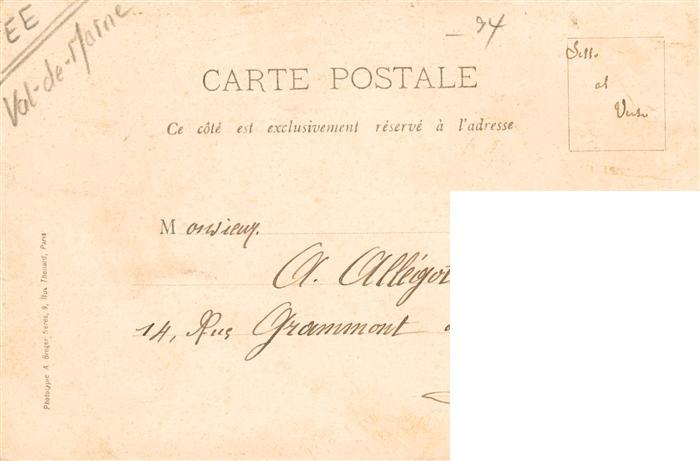 EE
Val-de-Marne
- 94
CARTE POSTALE
Ce côté est exclusivement réservé à l'adresse
et
Monsieur
A. Allégot
14, Rue Grammont
Phototypie A. Berger frères, 9, Rue Thénard, Paris